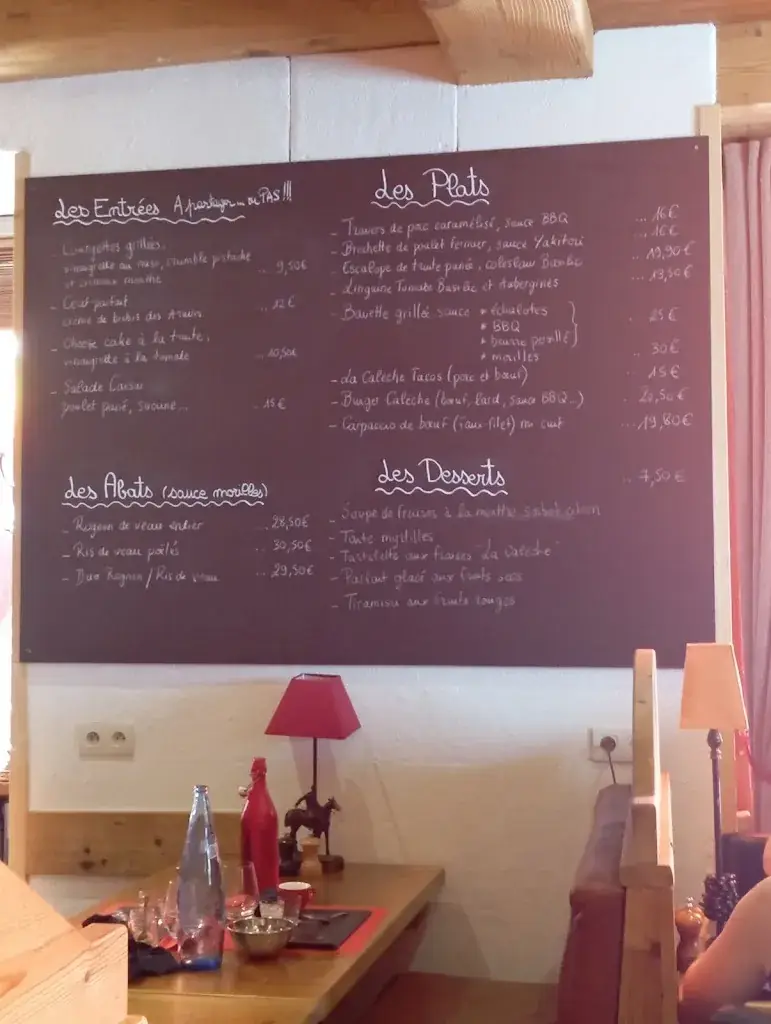 Les Entrées A partager... ou PAS!!!
- Courgettes grillées,
vinaigrette au miso, crumble pistache
et crémeux menthe ... 9,50€
- Oeuf parfait ... 12€
crème de brebis des
- Cheese cake à la truite,
vinaigrette à la tomate ... 10,50€
- Salade Caesar
poulet pané, sucrine... .. 15€
Les Abats (sauce morilles)
- Rognon de veau entier ... 28,50€
- Ris de veau poêlés ... 30,50€
- Duo Rognon/Ris de veau ... 29,50€
Les Plats
- Travers de porc caramélisé, sauce BBQ ... 16€
- Brochette de poulet fermier, sauce Yakitori ... 16€
- Escalope de truite panée, coleslaw ... 19,90€
- Linguine Tomate Basilic et Aubergines ... 13,50€
- Bavette grillée sauce * échalotes
* BBQ .. 25€
* beurre persillé
* morilles .. 30€
- La Calèche Tacos (porc et bœuf) .. 15€
- Burger Calèche (bœuf, lard, sauce BBQ...) .. 20,50€
- Carpaccio de bœuf (faux-filet) mi cuit ... 19,80€
Les Desserts .. 7,50€
- Soupe de fraises à la menthe sorbet citron
- Tarte myrtilles
- Tartelette aux fraises "La Calèche"
- Parfait glacé aux fruits secs
- Tiramisu aux fruits rouges